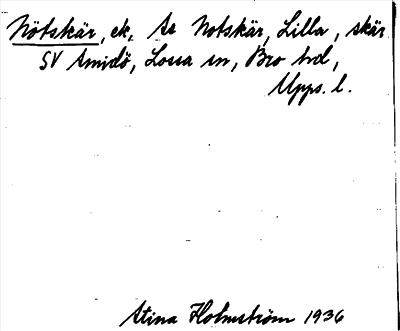 Nötskär, ek, Se Notskär, Lilla, skär
SV Amidö, Lossa sn, Bro hd,
Upps. l.
Stina Holmström 1936